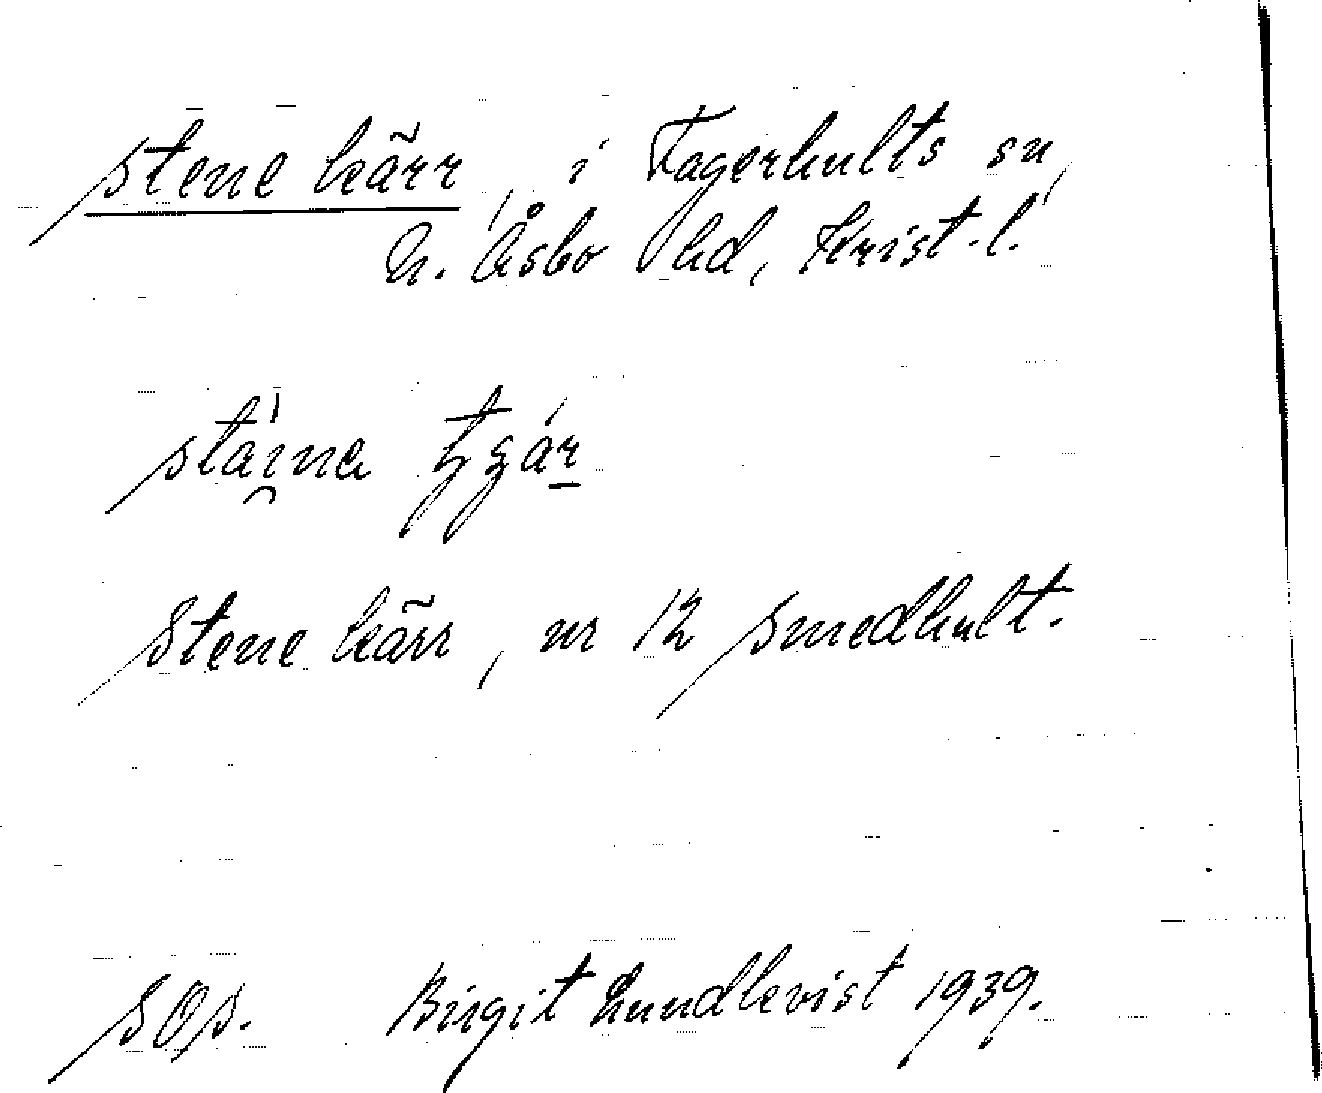 Stene kärr, i Fagerhults sn,
N. Åsbo hd, Krist. l.
Stene kärr, nr 12 Smedhult.
Birgit Lundkvist 1939.